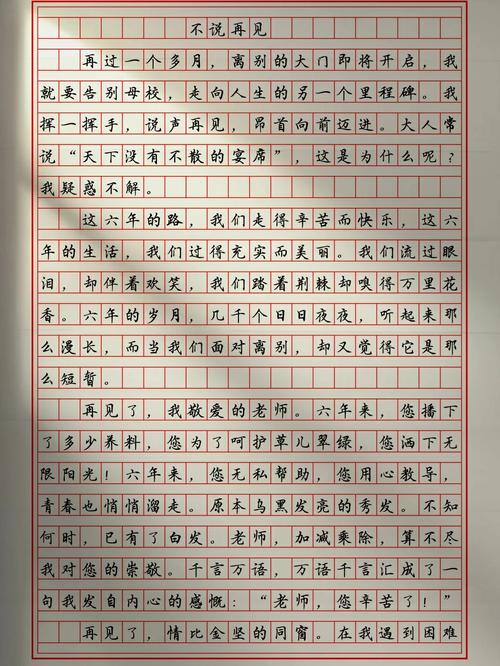 不说再见
再过一个多月，离别的大门即将开启，我
就要告别母校，走向人生的另一个里程碑。我
挥一挥手，说声再见，昂首向前迈进。大人常
说“天下没有不散的宴席”，这是为什么呢？
我疑惑不解。
这六年的路，我们走得辛苦而快乐，这六
年的生活，我们过得充实而美丽。我们流过眼
泪，却伴着欢笑，我们踏着荆棘却嗅得万里花
香。六年的岁月，几千个日日夜夜，听起来那
么漫长，而当我们面对离别，却又觉得它是那
么短暂。
再见了，我敬爱的老师。六年来，您播下
了多少养料，您为了呵护草儿翠绿，您洒下无
限阳光！六年来，您无私帮助，您用心教导，
青春也悄悄溜走。原本乌黑发亮的秀发。不知
何时，已有了白发。老师，加减乘除，算不尽
我对您的崇敬。千言万语，万语千言汇成了一
句我发自内心的感慨：“老师，您辛苦了！”
再见了，情比金坚的同窗。在我遇到困难